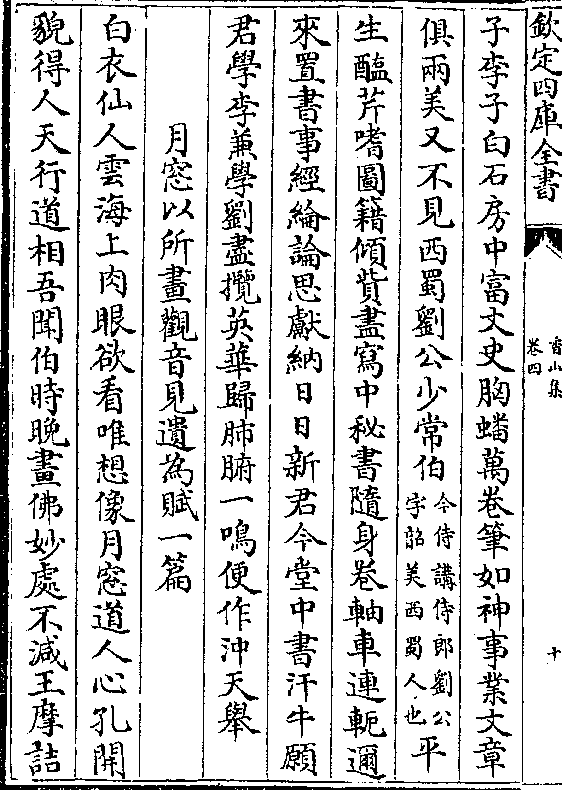 欽定四庫全書
香山集
卷四
十
子李子白石房中富文史胸蟠萬卷筆如神事業文章
俱兩美又不見西蜀劉公少常伯今侍講侍郎劉公字韶美西蜀人也平
生醢芹嗜圖籍傾貲盡寫中秘書隨身卷軸車連軛邇
來置書事經綸論思獻納日日新君今堂中書汗牛願
君學李兼學劉盡攬英華歸肺腑一鳴便作沖天舉
月窓以所畫觀音見遺為賦一篇
白衣仙人雲海上肉眼欲看唯想像月窓道人心孔開
貌得人天行道相吾聞伯時晚畫佛妙處不減王摩詰